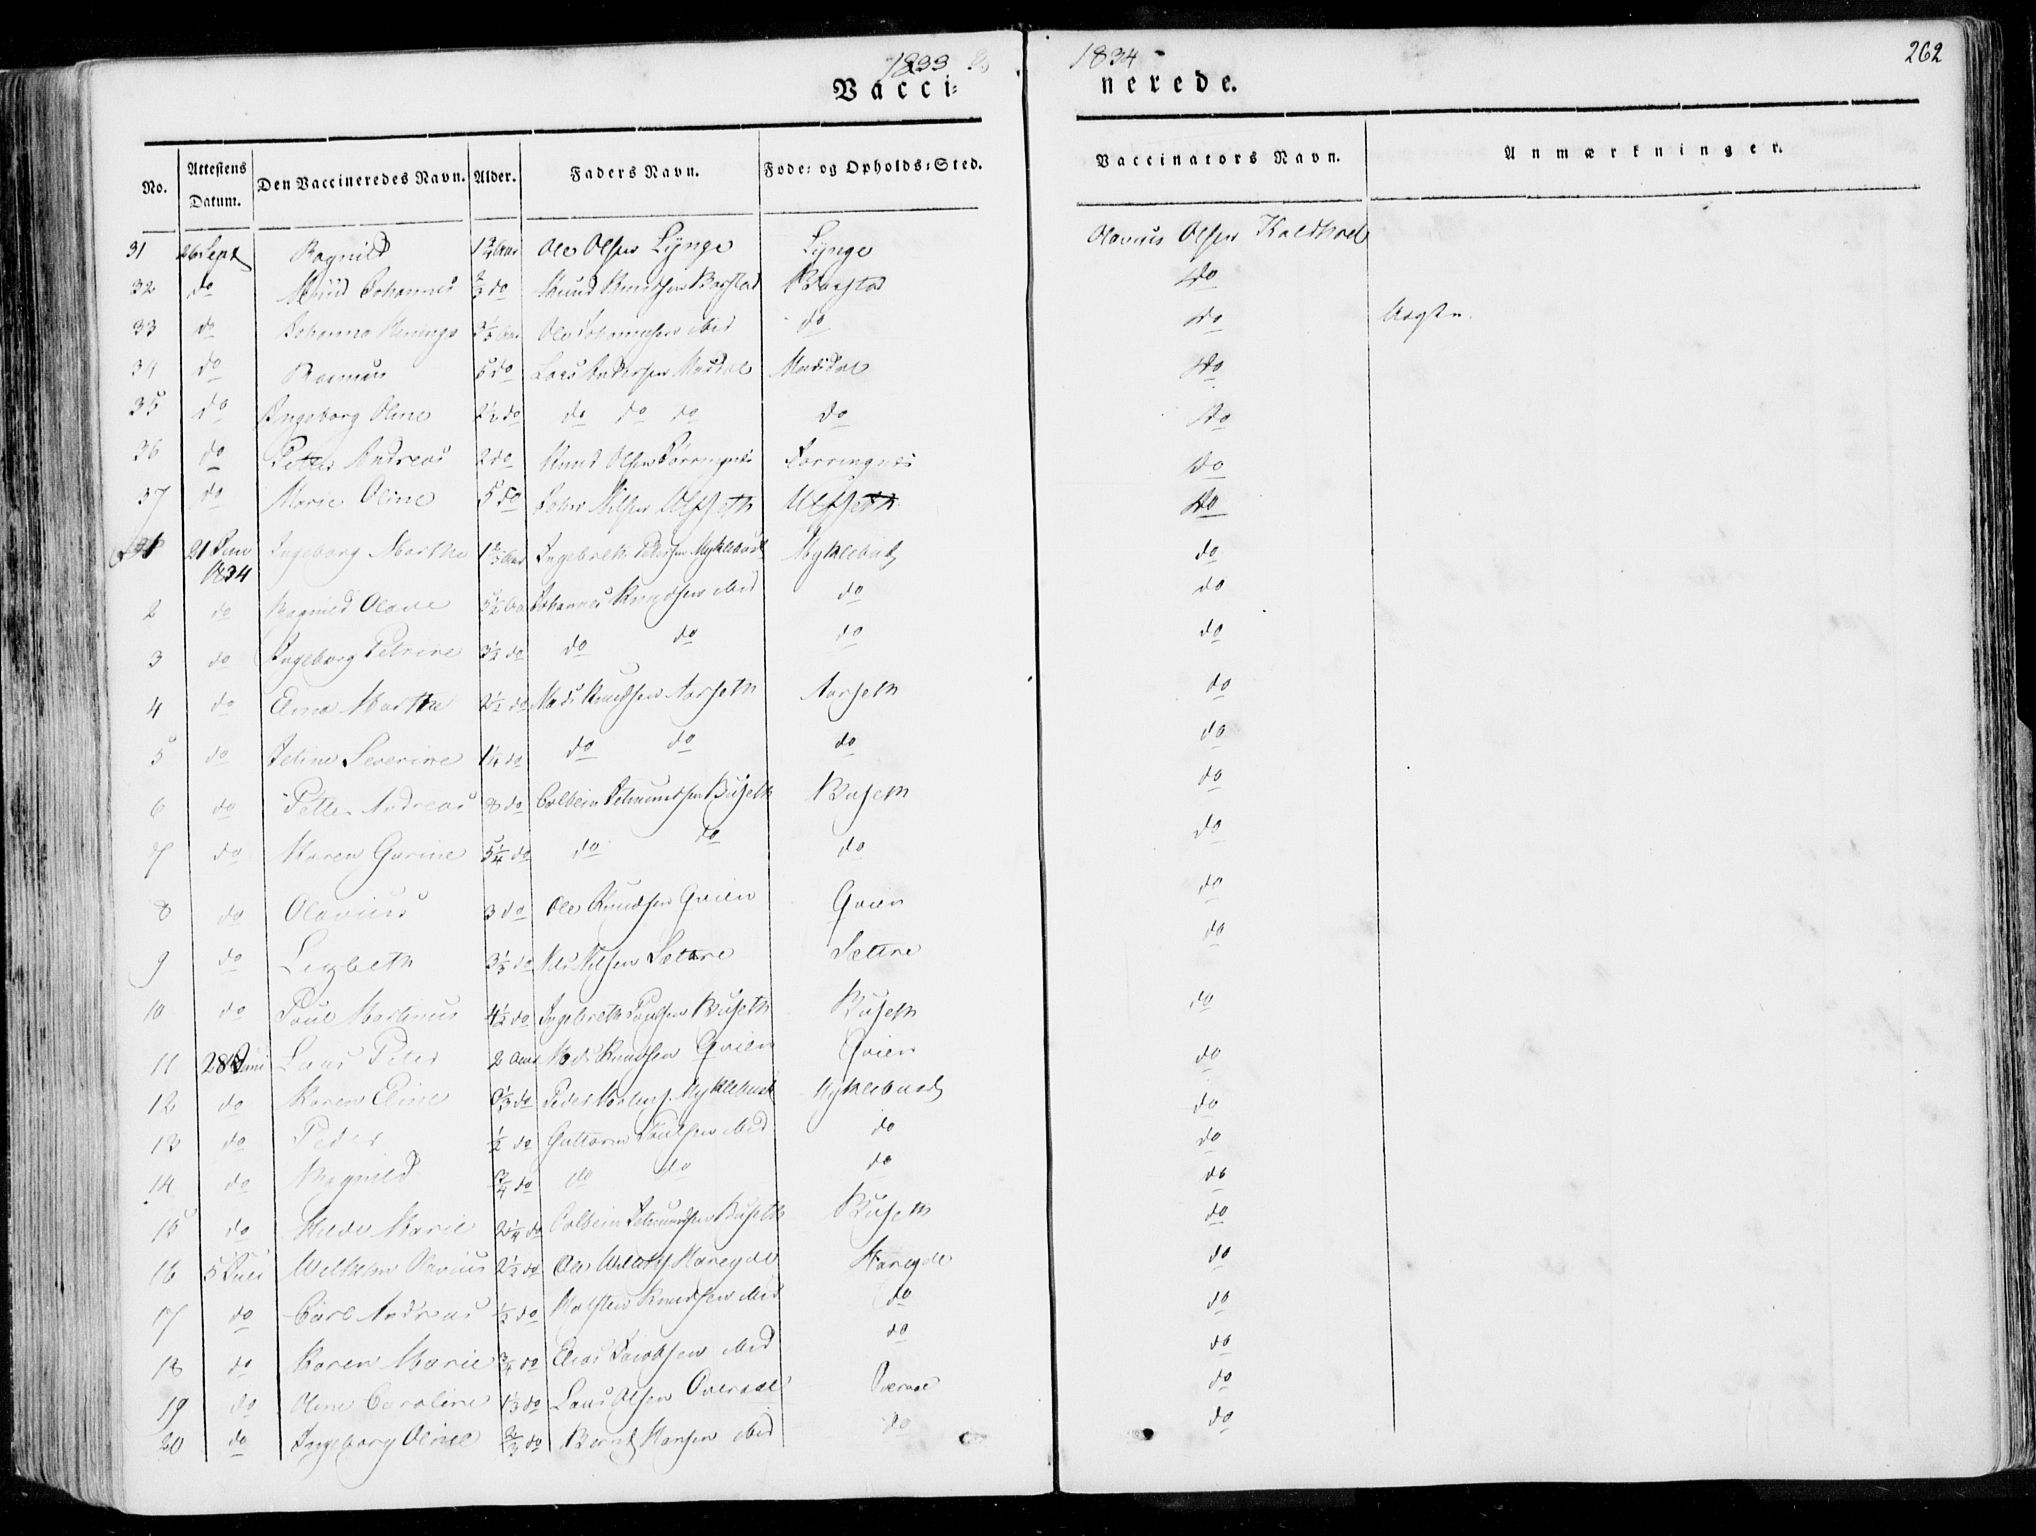 1833 1834 262
Vacci= nerede.
No. Attestens Datum. Den Vaccineredes Navn. Alder. Faders Navn. Føde= og Opholds=Sted. Vaccinators Navn. Anmærkninger.
31 26 Sept Ragnild 1 3/4 Aar Ole Olsen Lÿnge Lÿnge Olavius Olsen Kaldhoel
32 do Knud Johannes 2/3 do Knud Knudsen Barstad Barstad do
33 do Johanna 3 1/2 Aar Ole Johannesen ibid do do
34 do Rasmus 5 do Lars Andersen Masdal Masdal do
35 do Ingeborg Oline 2 1/2 do do do do do do
36 do Petter Andreas 2 do Knud Olsen do
37 do Marie Oline 5 do Nilsen Ulfseth Ulfseth do
1 21 Juni 1834 Ingeborg Marthe 1 2/3 Aar Ingebreth Pedersen Myklebust Myklebust do
2 do Ragnild Olave 5 1/2 Aar Johannes Knudsen ibid do do
3 do Ingeborg Petrine 3 1/2 do do do do do
4 do Marthe 2 1/2 do Mads Knudsen Aarseth Aarseth do
5 do Severine 1 1/4 do do do do do
6 do Petter Andreas 8 do Colbein Buseth Buseth do
7 do Maren Gurine 5 1/4 do do do do do
8 do Olavius 3 do Ole Knudsen Qvien Qvien do
9 do Lizbeth 3 1/3 do Nils Nilsen Sættre Sættre do
10 do Poul Martinus 4 1/2 do Ingebreth Poulsen Buseth Buseth do
11 28 Juni Lars Peter 2 Aar Mads Knudsen Qvien Qvien do
12 do Karen Eline 1/3 do Peder Myklebust Myklebust do
13 do Peder 1/2 do Guttorm Poulsen ibid do do
14 do Ragnild 3/4 do do do do do
15 do Marie 2 1/4 do Colbein Buseth Buseth do
16 5 Juli Wilhelm 2 1/2 do Ole Hareyde Hareyde do
17 do Carl Andreas 1/2 do Knudsen ibid do do
18 do Karen Marie 3/4 do Elias Jacobsen ibid do do
19 do Oline Caroline 1 1/3 do Lars Olsen Overaae Overaae do
20 do Ingeborg Oline 2/3 do Bernt Hansen ibid do do